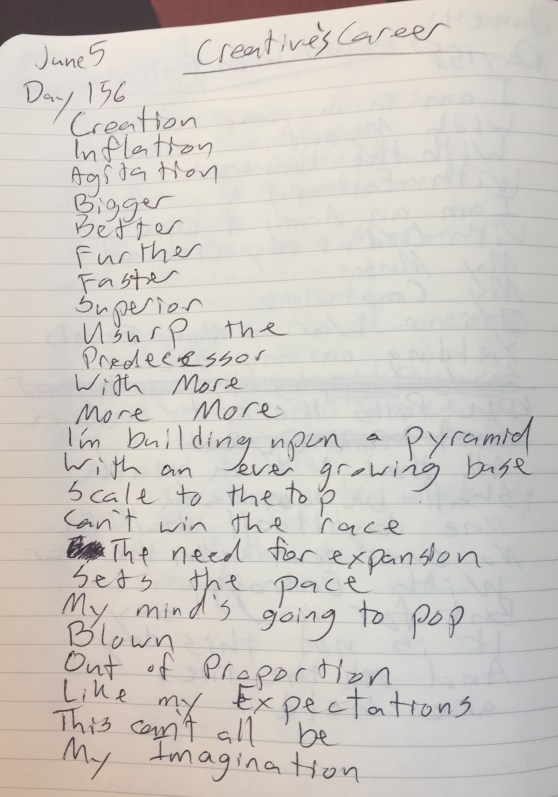 June 5
Creative's Career
Day 156
Creation
Inflation
Agitation
Bigger
Better
Further
Faster
Superior
Usurp the
Predecessor
With More
More More
I'm building upon a pyramid
With an ever growing base
Scale to the top
Can't win the race
The need for expansion
Sets the pace
My mind's going to pop
Blown
Out of Proportion
Like my Expectations
This can't all be
My Imagination